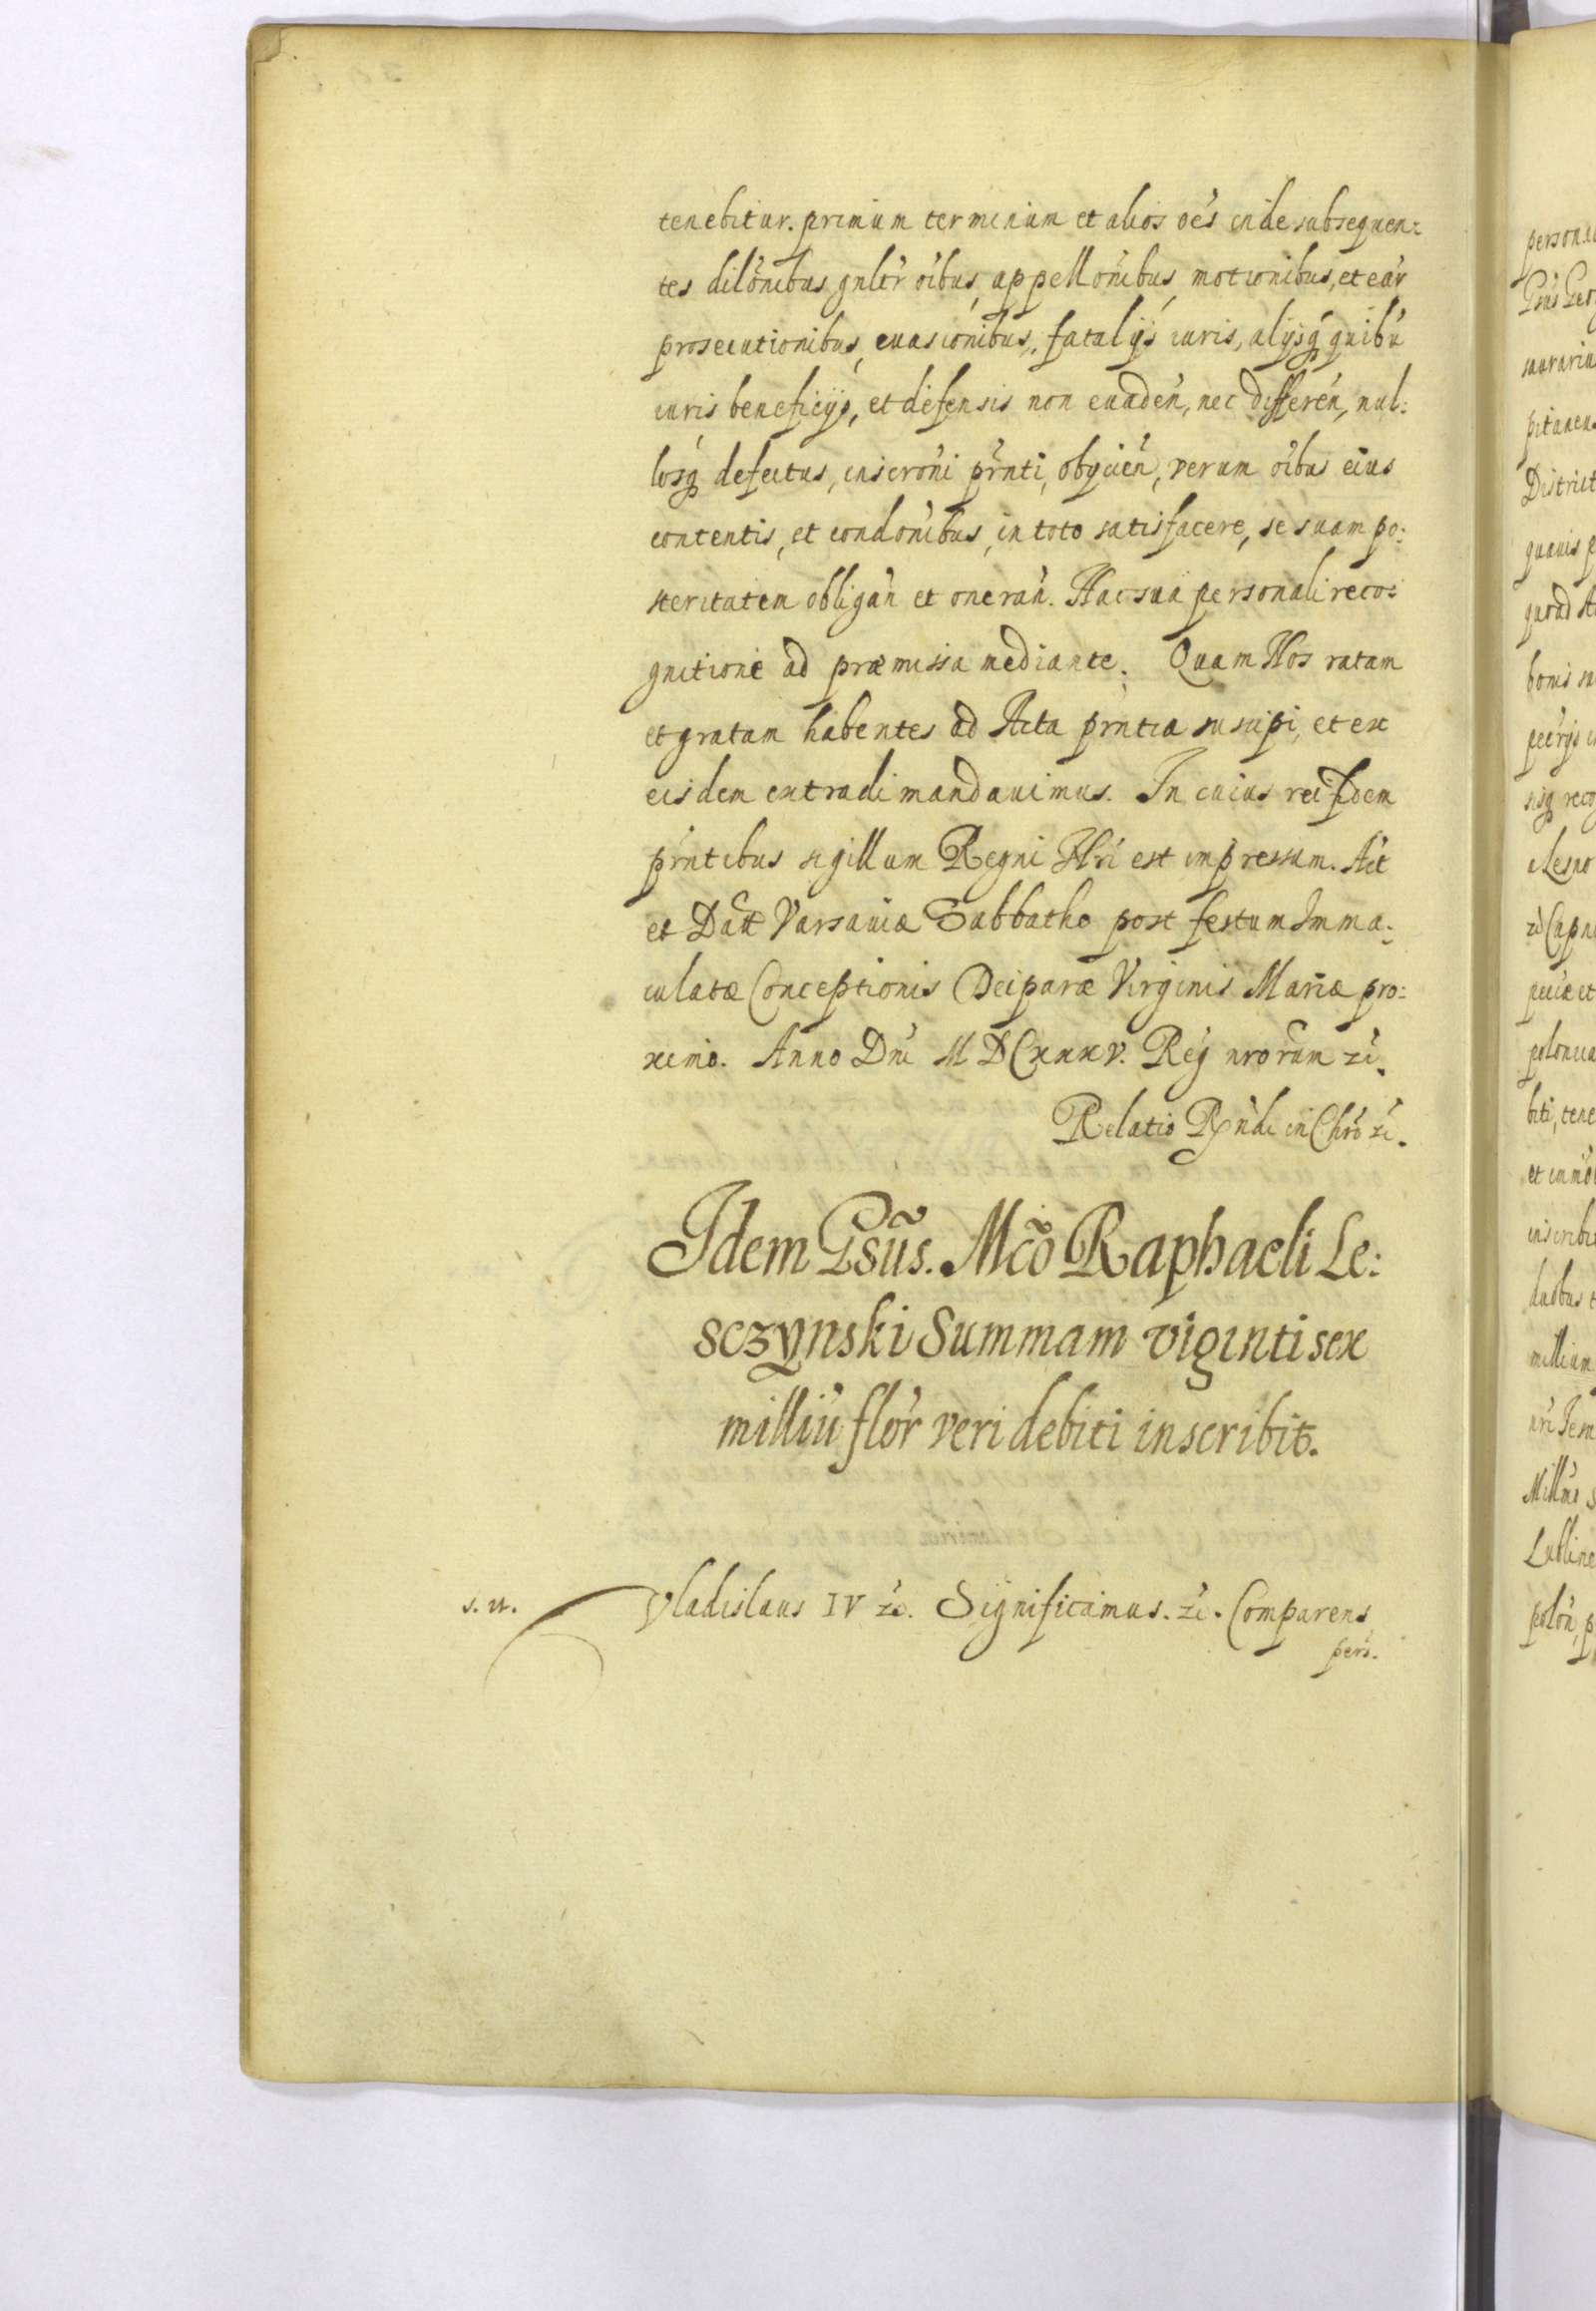 tenebitur. primum terminum et alios oe᷃s inde subsequen=
tes dilo᷃nibus gnltr᷃ oi᷃bus, appello᷃nibus, motionibus, et ear᷃
prosecutionibus, euasionibus, fatalijs iuris, alijsq́ quibu᷃
iuris beneficijs, et defensis non euaden᷃, nec differen᷃, nul:
losq́ defectus, inscro᷃ni prn᷃ti, obijcien᷃, verum oi᷃bus eius
contentis, et condo᷃nibus, in toto satisfacere, se suam po:
steritatem obligan᷃ et oneran᷃. Hac sua personali reco=
gnitione ad præmissa mediante. Quam Nos ratam
et gratam habentes ad Acta prn᷃tia suscipi, et ex
eisdem extradi mandauimus. In cuius rei fidem
prn᷃tibus sigillum Regni Nri᷃ est impressum. Act᷃
et Datt᷃ Varsauiæ Sabbatho post festum Imma:
culatæ Conceptionis Deiparæ Virginis Mariæ pro:
ximo. Anno Dni᷃ MDCxxxv. Reg᷃ nrorum᷃ zc᷃.
Relatio Rn᷃di in Chro᷃ zc᷃.
Idem Gsus᷃. Mco᷃ Raphaeli Le:
sczynski Summam viginti sex
milliu᷃ flor᷃ veri debiti inscribit.
s. n. Vladislaus IV zc᷃. Significamus. zc᷃. Comparens
pers᷃.
persona
Gsus᷃ Geor
District
quauis p
quoad A
bonis su
a Lesno
peciæ et
biti, tene
inscribit
duobus
millium
Lubline
polon᷃, p